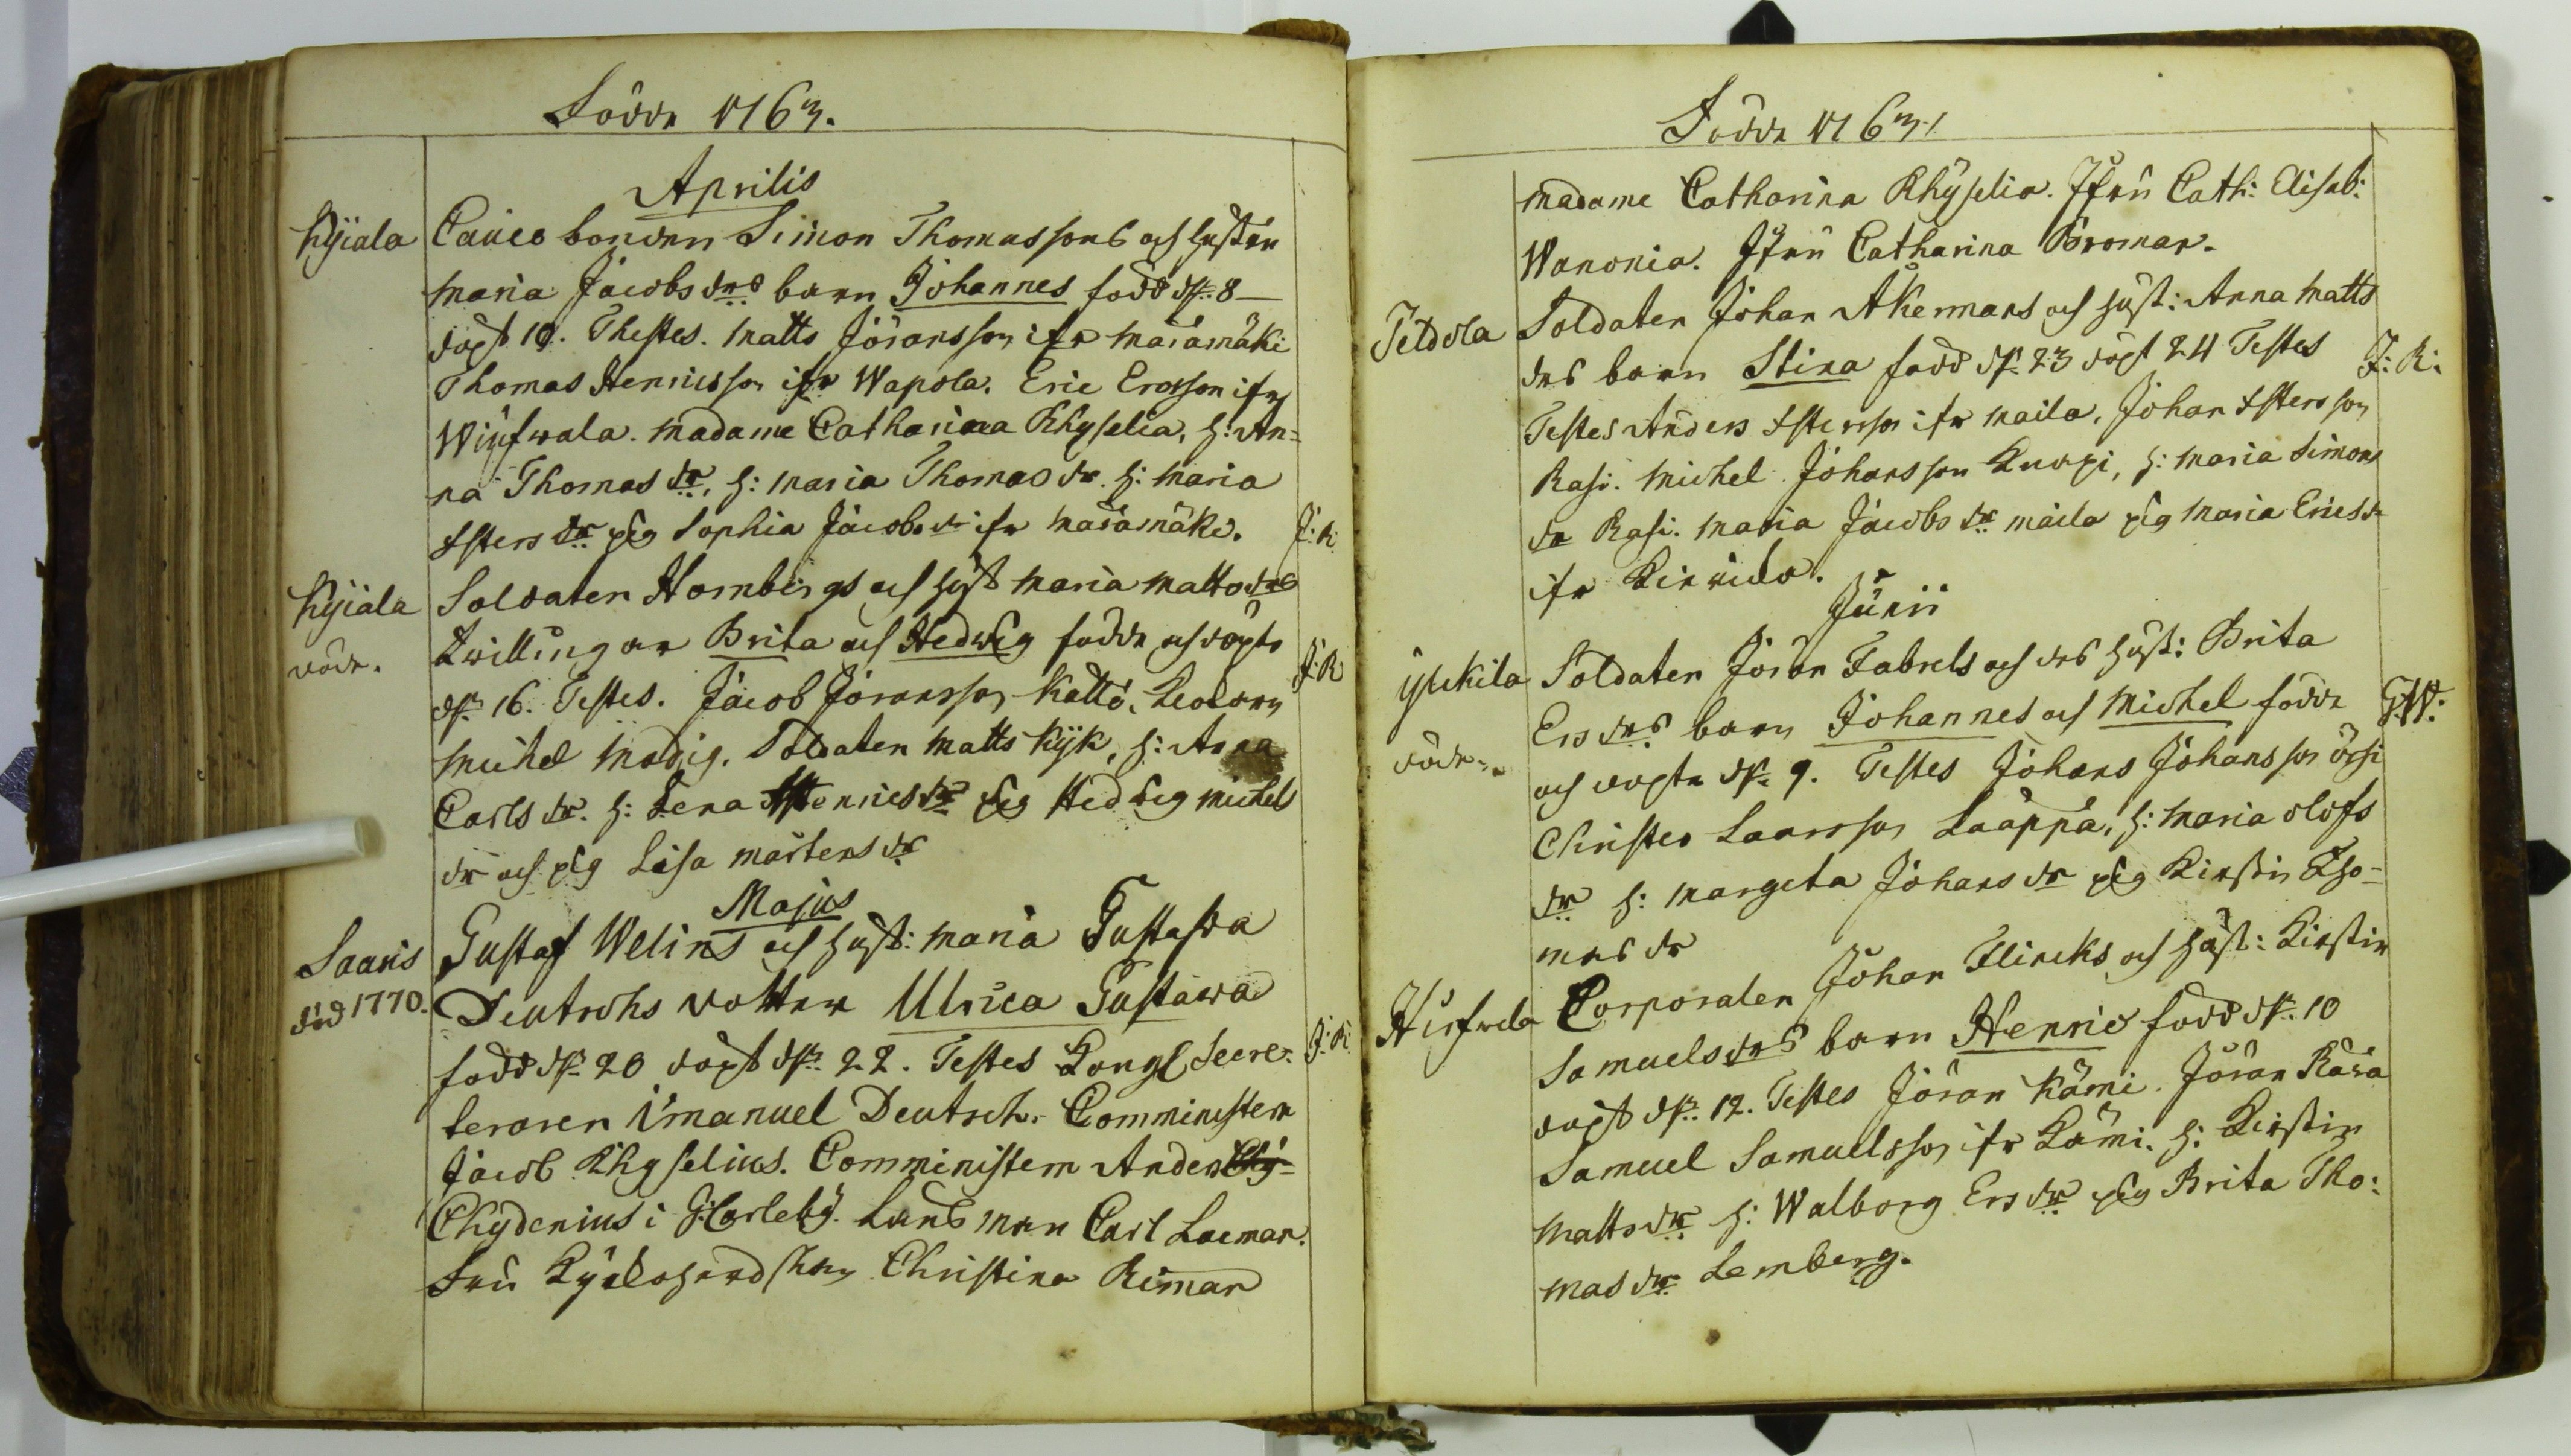 Födde 1763.
Aprilis
Kyiala Cauco bonden Simon Thomassons och hustrun
Maria Jacobs drs barn Johannes född d. 8
döpt 10. Thestes. Matts Jöransson ifr Maramäki
Thomas Henricsson ifr Wapola. Eric Ersson ifr
Madame Catharina Rhyselia, h: An=
na Thomas dr, h: Maria Thomas dr. h: Maria
dr pig Sophia Jacobs dr ifr Maramäki. J:R
Kyiala Soldaten Hornbergs och hust Maria Matts drs
döde. Zwillingar Brita och Hedwig födde och döpte J:R
d. 16. Testes. Jacob Jöransson Kattó,
Michel Modig. Soldaten Matts Kyk, h: Anna
Carls dr. h: Lena Henrics dr pig Hedvig Michels
dr och pig Lisa Mårtens dr
Majus
Saaris Gustaf Welins och hust: Maria Gustafva
död 1770. Deutschs dotter Ulrica Gustawa
född d. 20 döpt d. 22. Testes Kongl Secre: J:R
teraren Imanuel Deutsch. Comministern
Jacob Rhyselius. Comministern Anders Chy=
Chydenius i G:Carleby. Lands man Carl Lacman.
Fru Christina Riman
Födde 1763.
Madame Catharina Rhyselia. Jfru Cath: Elisab:
Wanonia. Jfru Catharina Broman.
Soldaten Johan Åkermans och hust: Anna Matts
drs barn Stina född d. 23 döpt 24 Testes J:R:
Testes Anders ifr Maila, Johan
Rasi. Michel Johansson Knapi, h: Maria Simons
dr Rasi. Maria Jacobs dr Maila pig Maria Erics dr
ifr
Junii
Soldaten Jöran Fabrels och des hust: Brita
Ers drs barn Johannes och Michel födde G:W:
döde. och döpte d. 9. Testes Johans Johansson
Christer Laarsson Laappa, h: Maria Olofs
dr h: Margeta Johans dr pig Kirstin Tho=
mas dr
Hirfwela Corporalen Johan Flincks och hust: Kirstin
Samuels drs barn Henric född d. 10
döpt d. 12. Testes Jöran Kämi. Jöran Rasa
Samuel Samuelsson ifr Kämi. h: Kirstin
Matts dr h: Walborg Ers dr pig Brita Tho:
mas dr Lemberg.